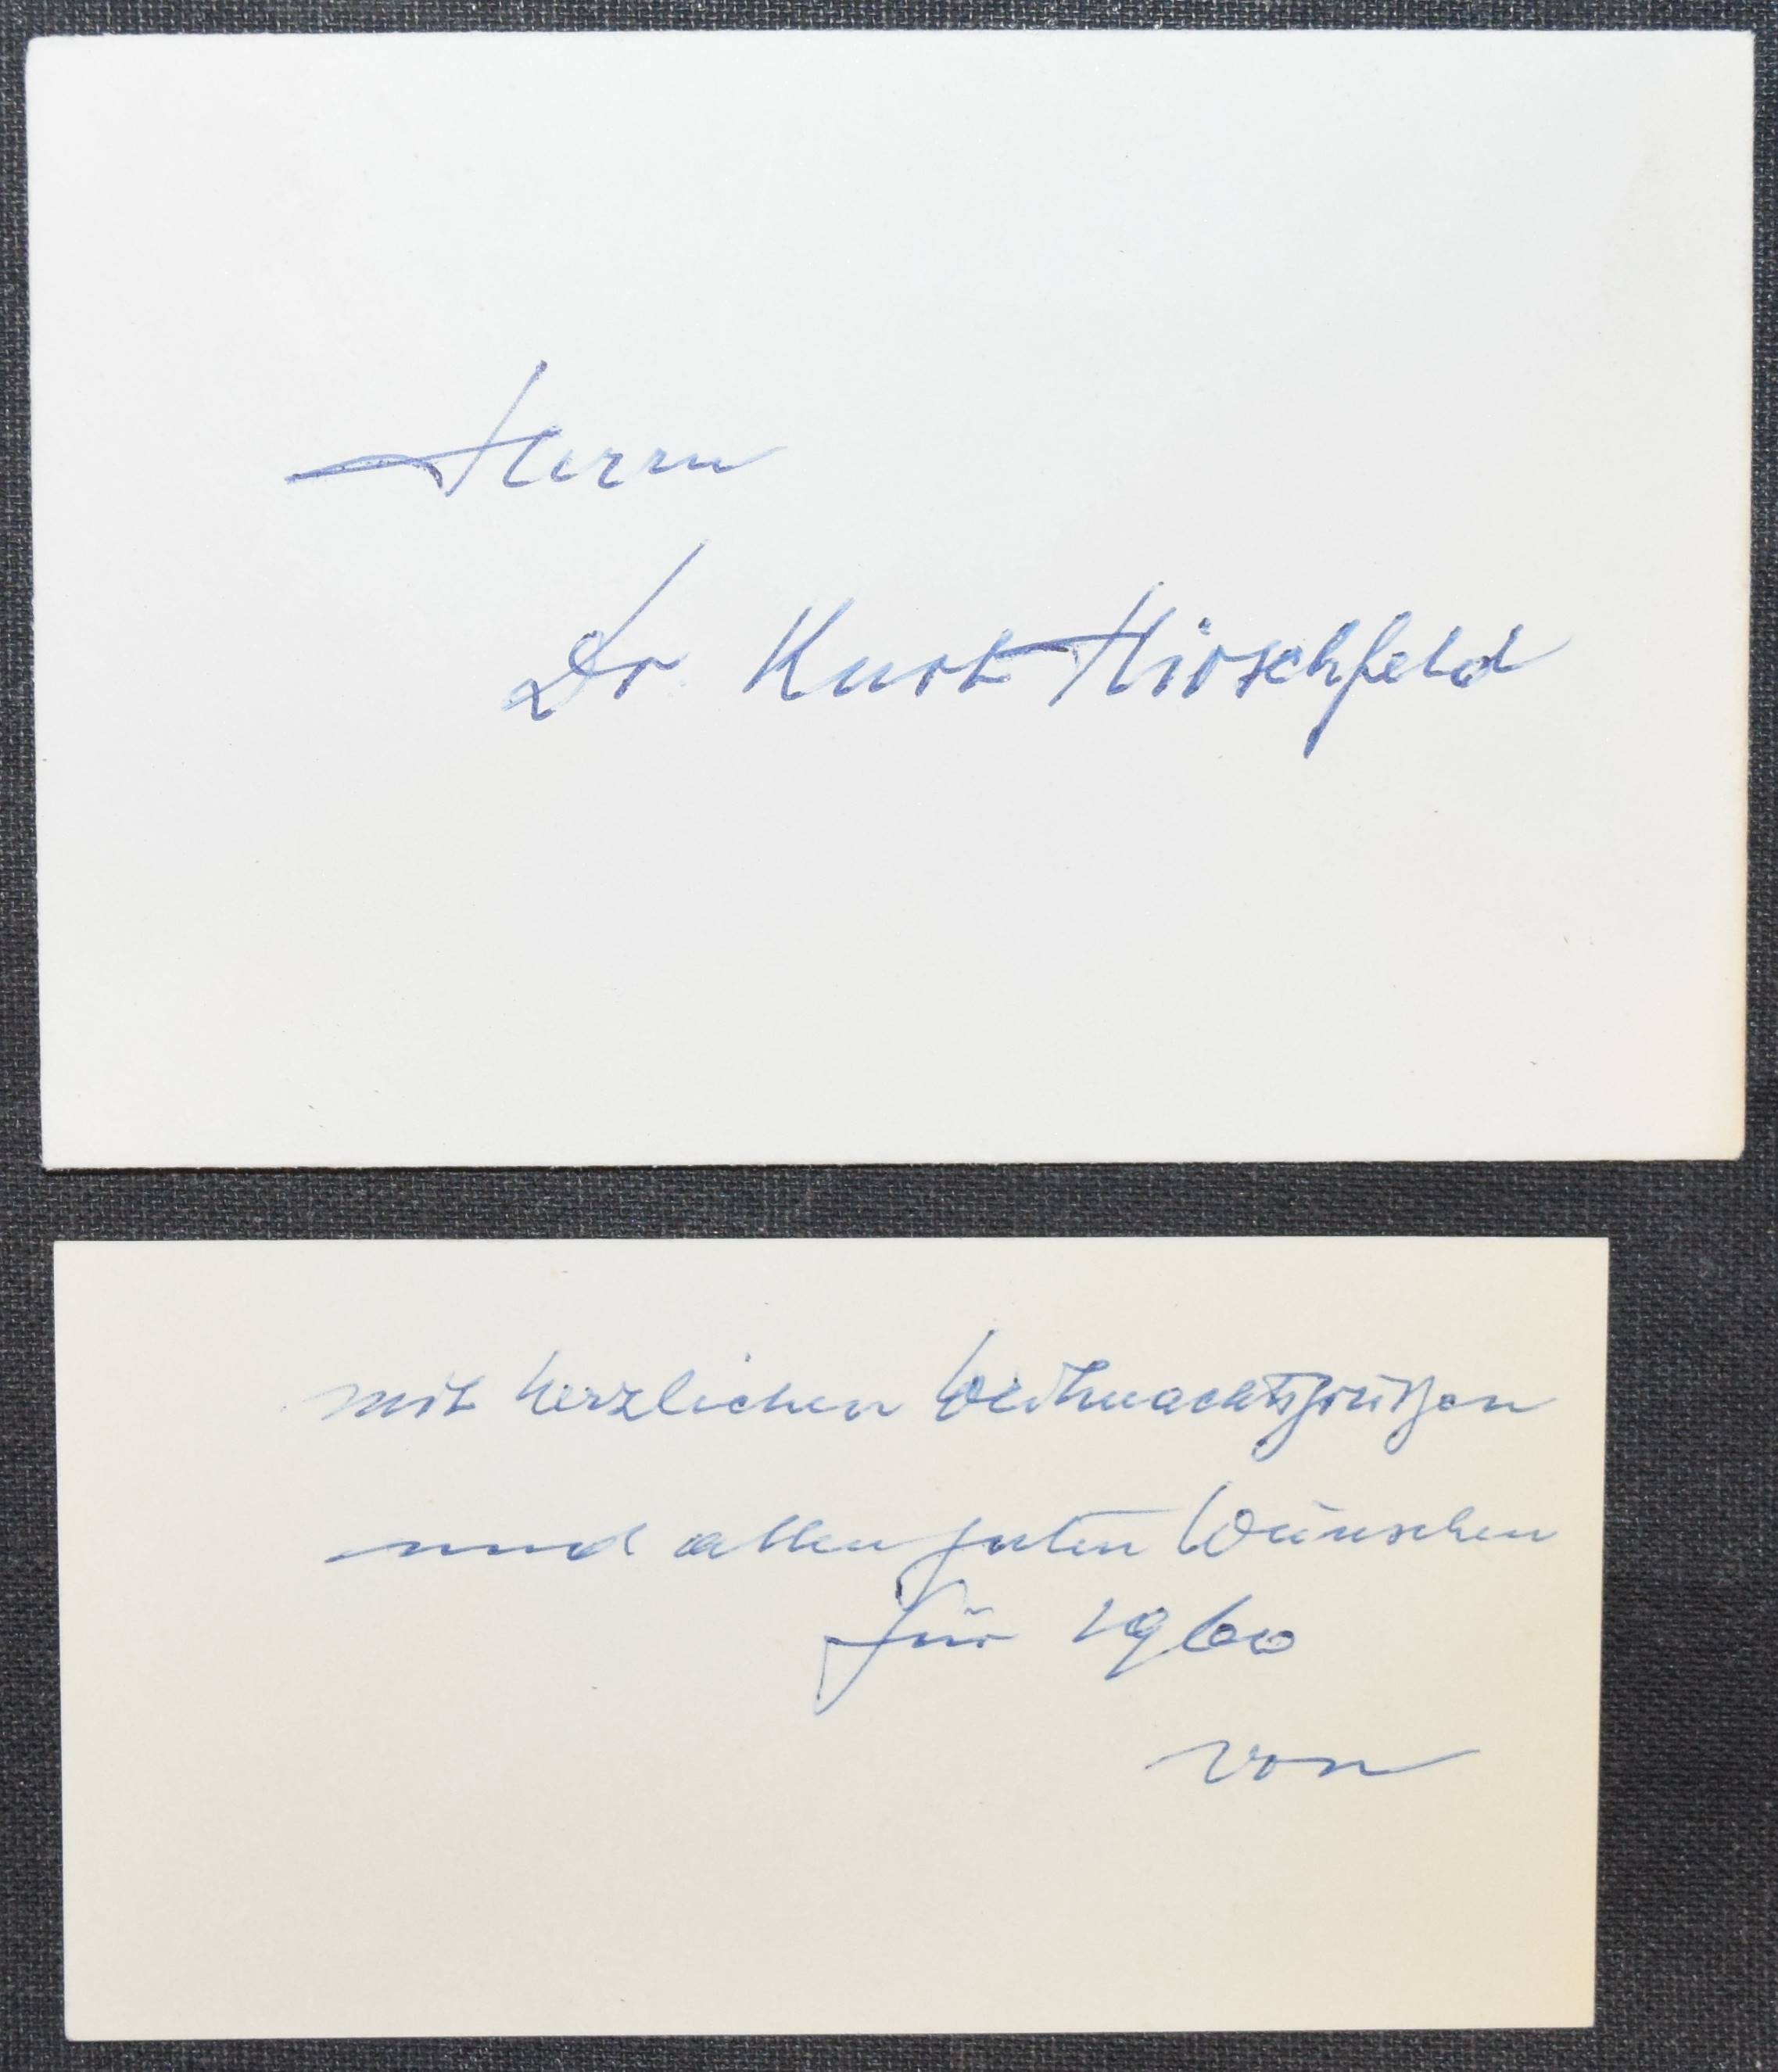 Herrn
Dr Kurt Hirschfeld
mit herzlichen Weihnachtsgrüßen
und allen guten Wünschen
für 1960
von